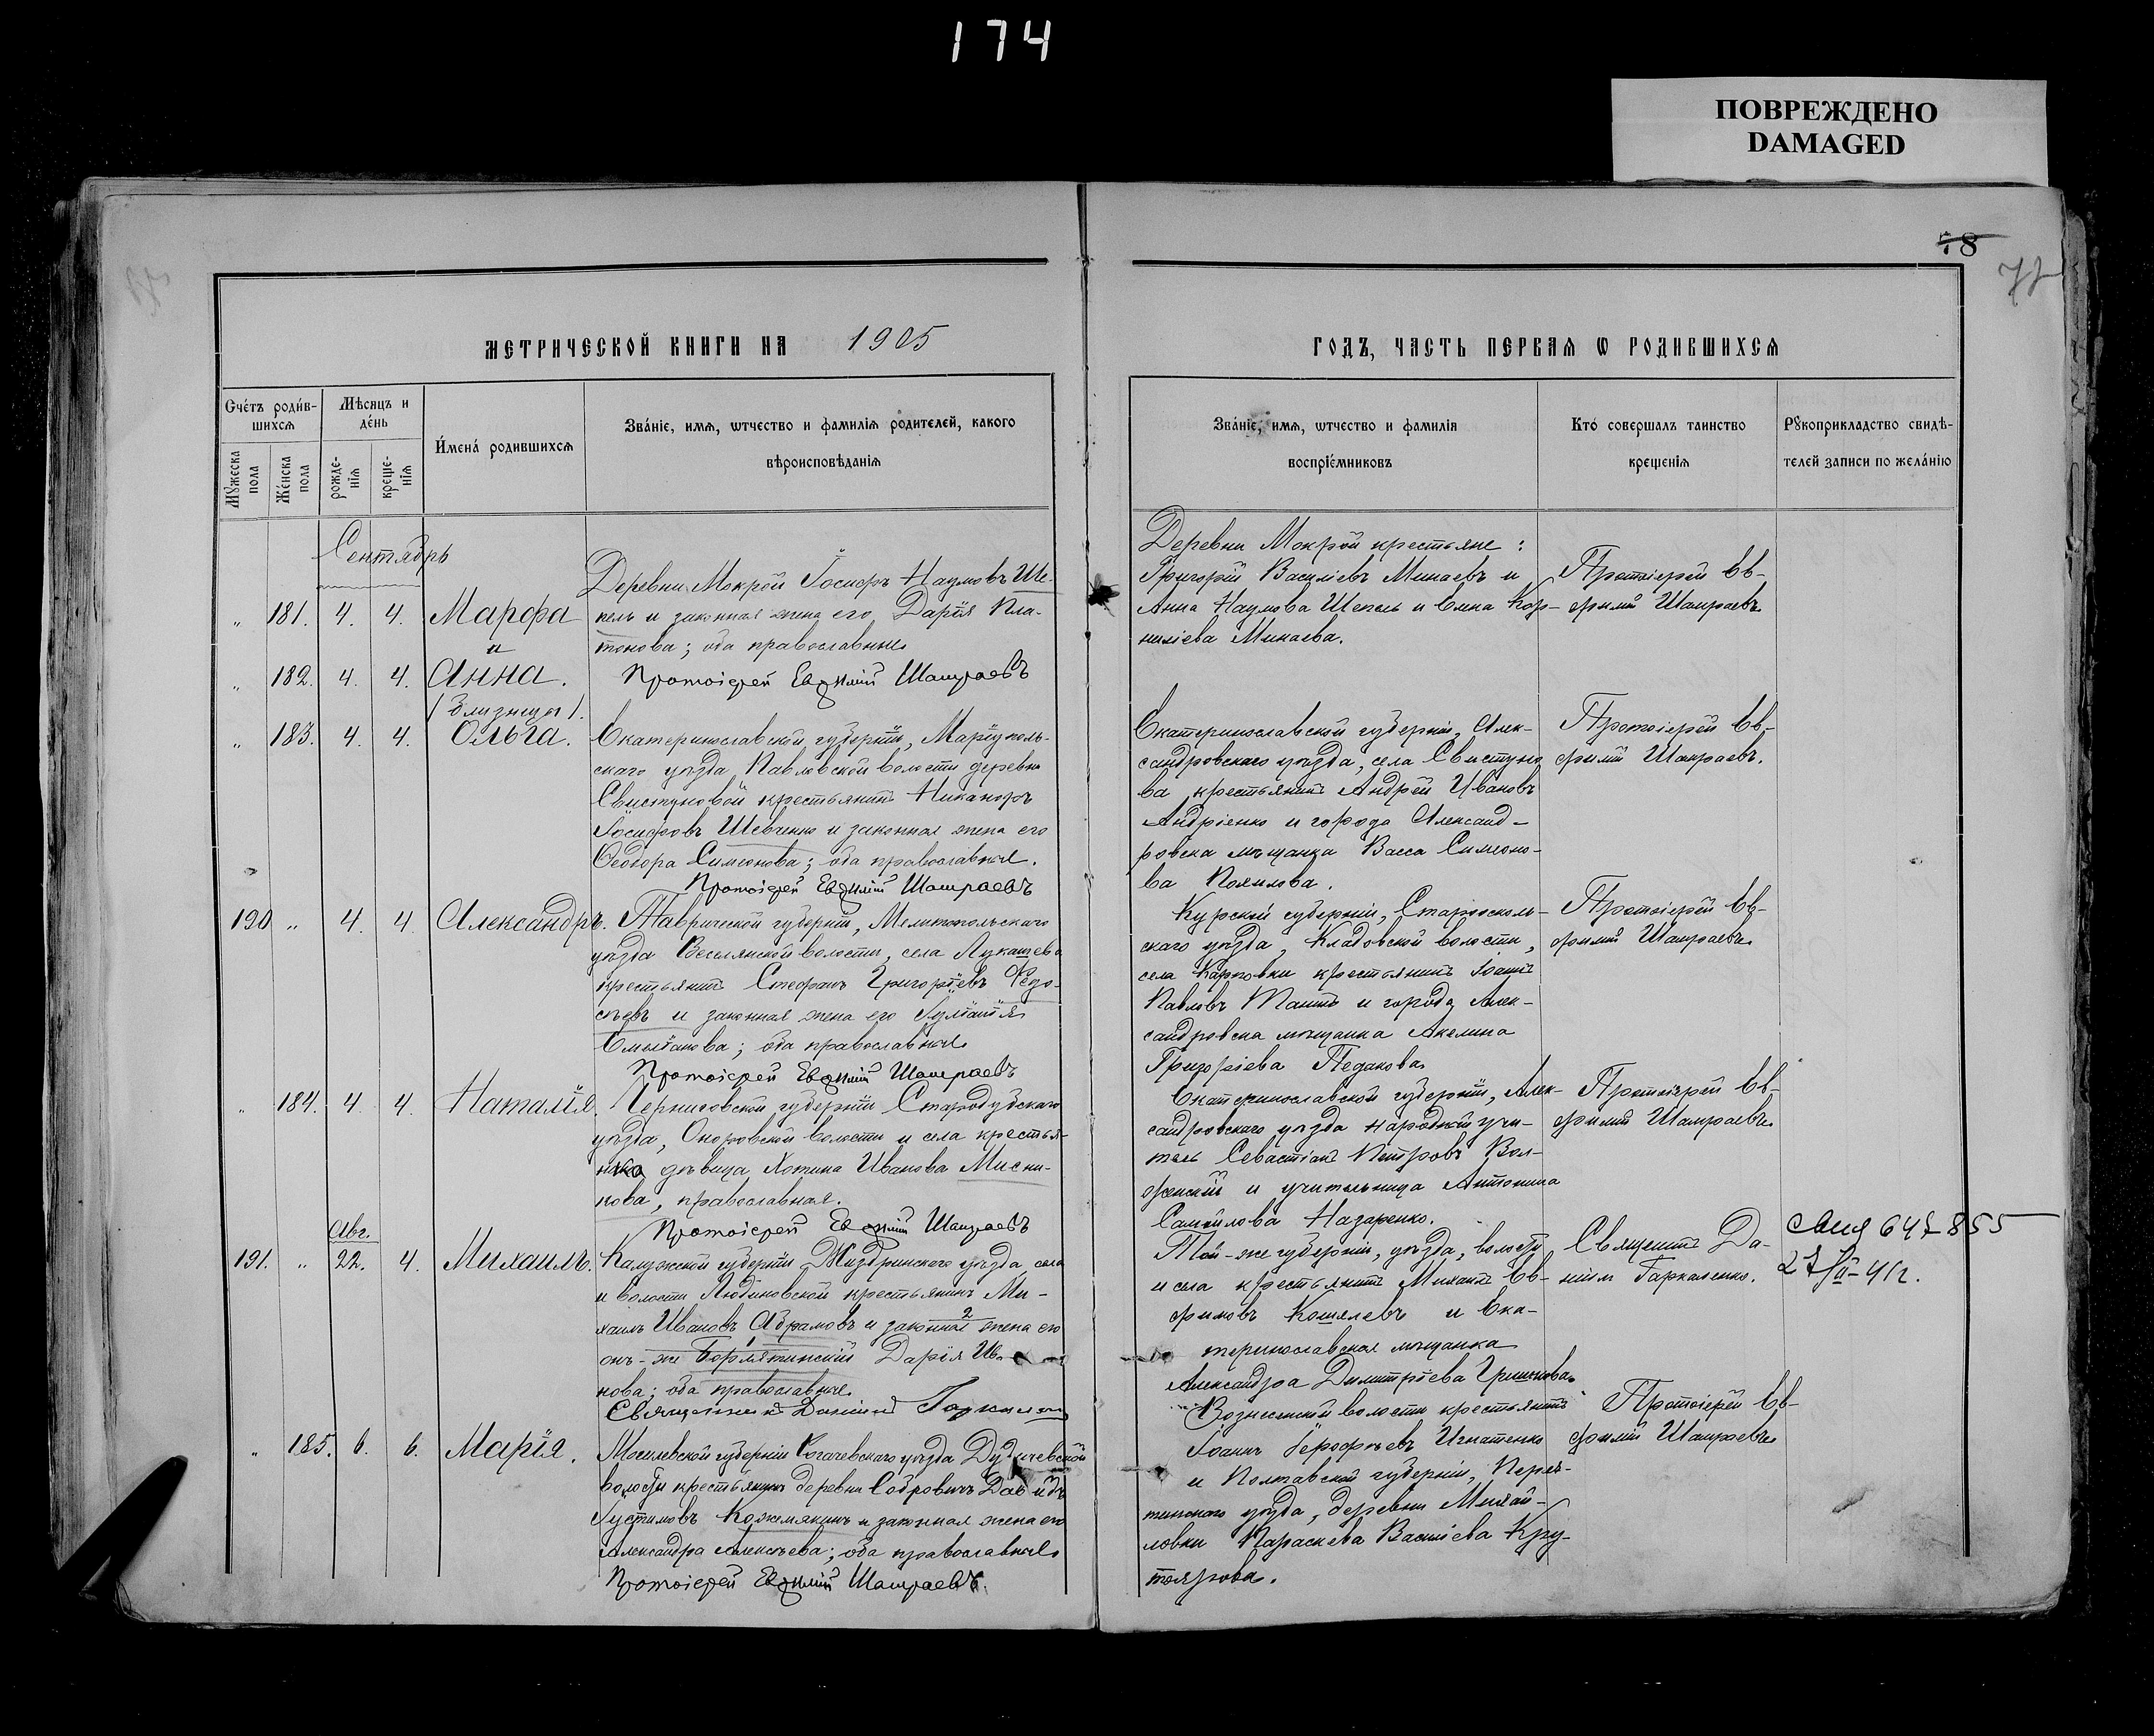 174
ПОВРЕЖДЕНО
DAMAGED
78
77
МЕТРИЧЕСКОЙ КНИГИ НА 1905
ГОДЪ, ЧАСТЬ ПЕРВАЯ Ѡ РОДИВШИХСѦ
Счéтъ роди́в-
шихсѧ
Мѣсяцъ и
дéнь
И́менá родившихсѧ
Звáніе, имѧ, ѡтчество и фамиліѧ родителей, какого
вѣроисповѣданіѧ
Мꙋжеска
пола
Жéнска
пола
рожде-
ніѧ
креще-
ніѧ
Звáніе, имѧ, ѡтчество и фамилія
воспріéмниковъ
Ктó совершалъ таинство
крещеніѧ
Рꙋкоприкладство свидѣ-
телей записи по желáнію
Сентябрь
„ 181. 4. 4. Марфа
и
„ 182. 4. 4. Анна.
(близнецы).
Деревни Мокрой Іосифъ Наумовъ Ше-
пель и законная жена его Дарія Пла-
тонова; оба православные
Протоіерей Евфимій Шамраевъ
Деревни Мокрой крестьяне:
Григорій Василіевъ Минаевъ и
Анна Наумова Шепель и Елена Кор-
ниліева Минаева.
Протоіерей Ев-
фимій Шамраевъ.
„ 183. 4. 4. Ольга.
Екатеринославской губерніи, Маріуполь-
скаго уѣзда Павловской волости деревни
Свистуновой крестьянинъ Никаноръ
Іосифовъ Шевченко и законная жена его
Ѳеодора Симеонова; оба православные.
Протоіерей Евфимій Шамраевъ
Екатеринославской губерніи, Алек-
сандровскаго уѣзда, села Свистуно
ва крестьянинъ Андрей Ивановъ
Андріенко и города Александ-
ровска мѣщанка Васса Симеоно-
ва Полилова.
Протоіерей Ев-
фимій Шамраевъ.
190 „ 4. 4. Александръ.
Таврической губерніи, Мелитопольскаго
уѣзда Веселянской волости, села Лукашева
крестьянинъ Стефанъ Григоріевъ Ѳедо-
сѣевъ и законная жена его Іуліанія
Емиліанова; оба православные
Протоіерей Евфимій Шамраевъ
Курской губерніи, Старооскол-
скаго уѣзда, Кладовской волости,
села Карповки крестьянинъ Іоаннъ
Павловъ и города Алек-
сандровска мѣщанка Акелина
Григоріева Педакова
Протоіерей Ев-
фимій Шамраевъ
„ 184. 4 4. Наталія.
Черниговской губерніи Стародубскаго
уѣзда, волости и села крестья-
нка дѣвица Хотина Иванова Мисни-
кова, православная.
Протоіерей Евфимій Шамраевъ
Екатеринославской губерніи, Алек-
сандровскаго уѣзда народный учи-
тель Севастіанъ Петровъ Вол-
женскій и учительница Антонина
Самойлова Назаренко.
Протоіерей Ев-
фимій Шамраевъ
Авг.
191. „ 22. 4. Михаилъ.
Калужской губерніи Жиздринскаго уѣзда, села
и волости Людиновской крестьянинъ Ми-
хаилъ Ивановъ Абрамовъ и законная жена его
онъ-же Дарія Ива
нова; оба православные
Священникъ Даніилъ Гаркаленко
Той-же губерніи, уѣзда, волости
и села крестьянинъ Михаилъ Ев-
фимовъ Кошелевъ и Ека-
теринославская мѣщанка
Александра Димитріева Гришкова
Священникъ Да-
ніилъ Гаркаленко.
647855
27/II-41г.
„ 185. 6. 6. Марія.
Могилевской губерніи Рогачевскаго уѣзда Дудичевской
волости крестьянинъ деревни Давидъ
Іустиновъ Кожемякинъ и законная жена его
Александра Алексѣева; оба православные
Протоіерей Евфимій Шамраевъ.
Вознесенской волости крестьянинъ
Іоаннъ Іероѳеевъ Игнатенко
и Полтавской губерніи, Пиря-
тинскаго уѣзда, деревни Михай-
ловки Параскева Василіева Кру-
тоярова.
Протоіерей Ев-
фимій Шамраевъ